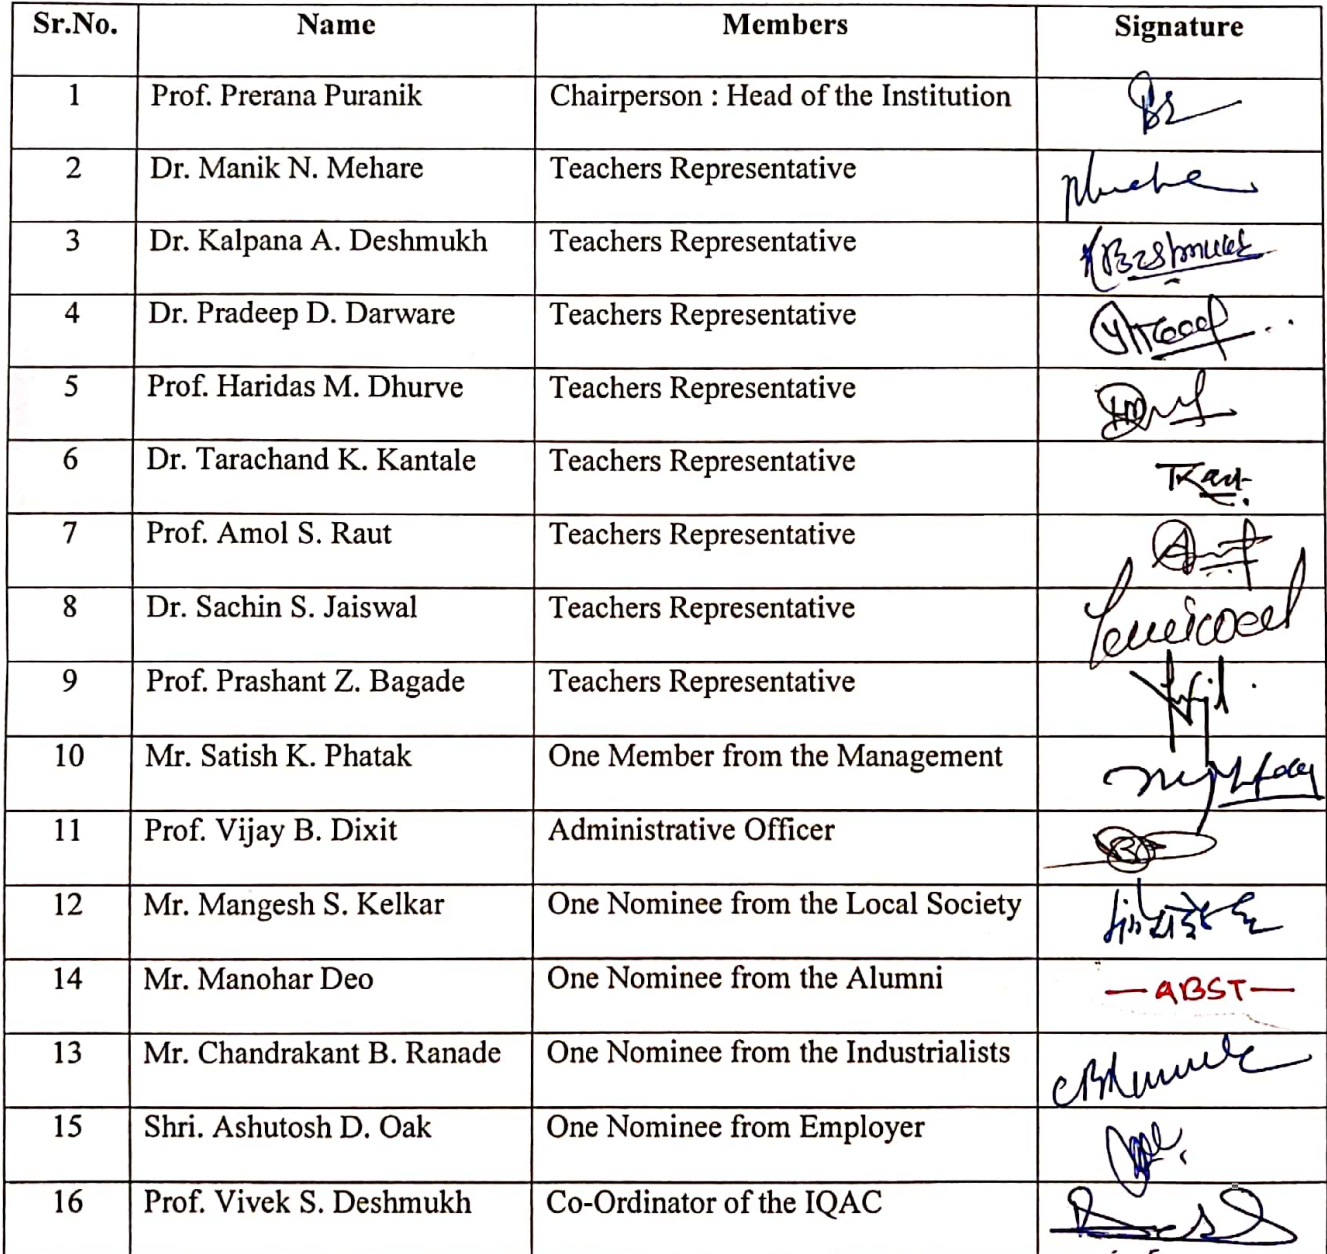 Sr.No. Name Members Signature
1 Prof. Prerana Puranik Chairperson : Head of the Institution
2 Dr. Manik N. Mehare Teachers Representative
3 Dr. Kalpana A. Deshmukh Teachers Representative
4 Dr. Pradeep D. Darware Teachers Representative
5 Prof. Haridas M. Dhurve Teachers Representative
6 Dr. Tarachand K. Kantale Teachers Representative
7 Prof. Amol S. Raut Teachers Representative
8 Dr. Sachin S. Jaiswal Teachers Representative
9 Prof. Prashant Z. Bagade Teachers Representative
10 Mr. Satish K. Phatak One Member from the Management
11 Prof. Vijay B. Dixit Administrative Officer
12 Mr. Mangesh S. Kelkar One Nominee from the Local Society
14 Mr. Manohar Deo One Nominee from the Alumni —ABST—
13 Mr. Chandrakant B. Ranade One Nominee from the Industrialists
15 Shri. Ashutosh D. Oak One Nominee from Employer
16 Prof. Vivek S. Deshmukh Co-Ordinator of the IQAC